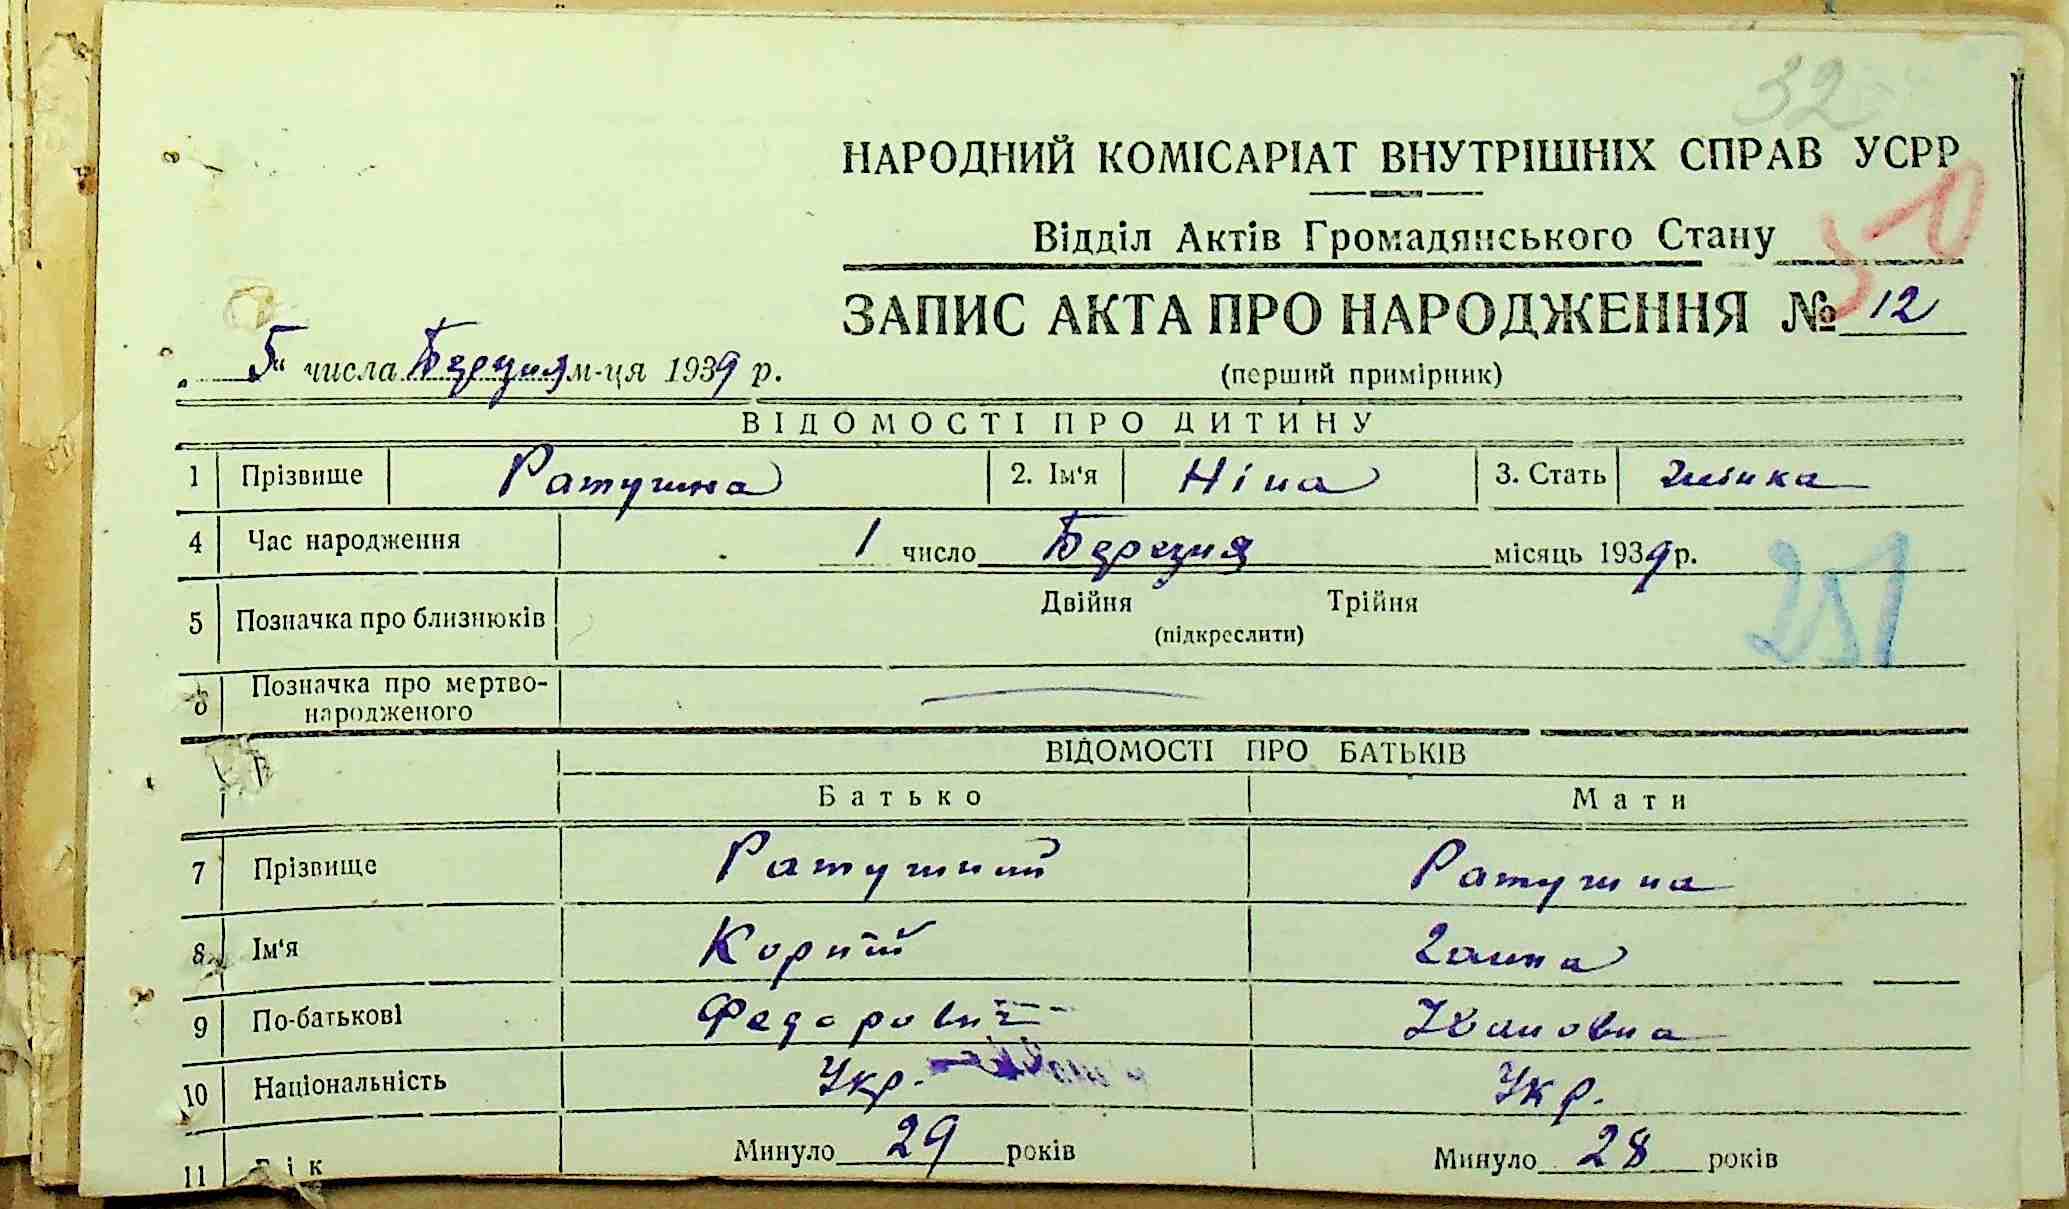 32
НАРОДНИЙ КОМІСАРІАТ ВНУТРІШНІХ СПРАВ УСРР
Відділ Актів Громадянського Стану
50
ЗАПИС АКТА ПРО НАРОДЖЕННЯ № 12
"5" числа Березня м-ця 1939 р.
(перший примірник)
ВІДОМОСТІ ПРО ДИТИНУ
1 Прізвище Ратушна 2. Ім'я Ніна 3. Стать жінка
4 Час народження 1 число Березня місяць 1939 р.
5 Позначка про близнюків Двійня Трійня
(підкреслити)
251
6 Позначка про мертво-
народженого
ВІДОМОСТІ ПРО БАТЬКІВ
Батько Мати
7 Прізвище Ратушний Ратушна
8 Ім'я Корній Ганна
9 По-батькові Федорович Іхимовна
10 Національність Укр. Укр.
11 Вік Минуло 29 років Минуло 28 років